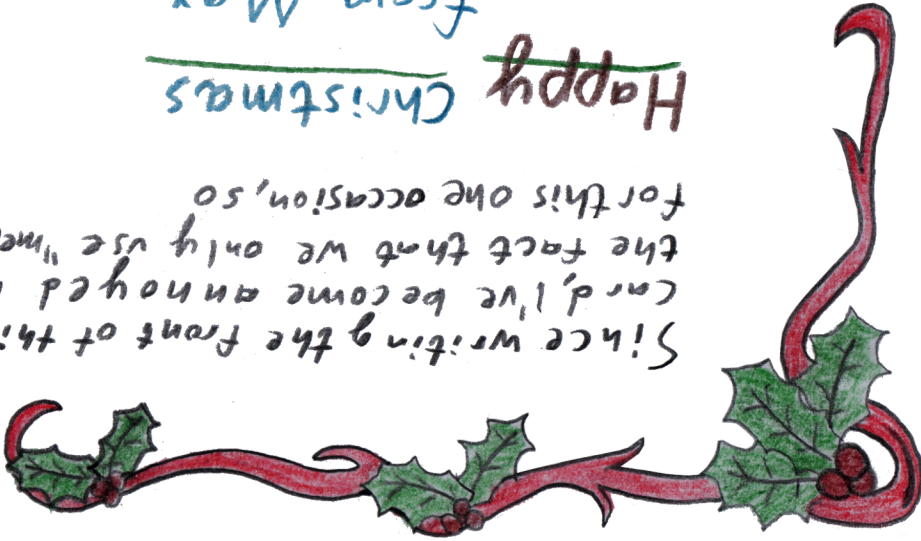 Since writing the front of thi
card, I've become annoyed
the fact that we only use "me
for this one occasion, so
Happy Christmas
from Max